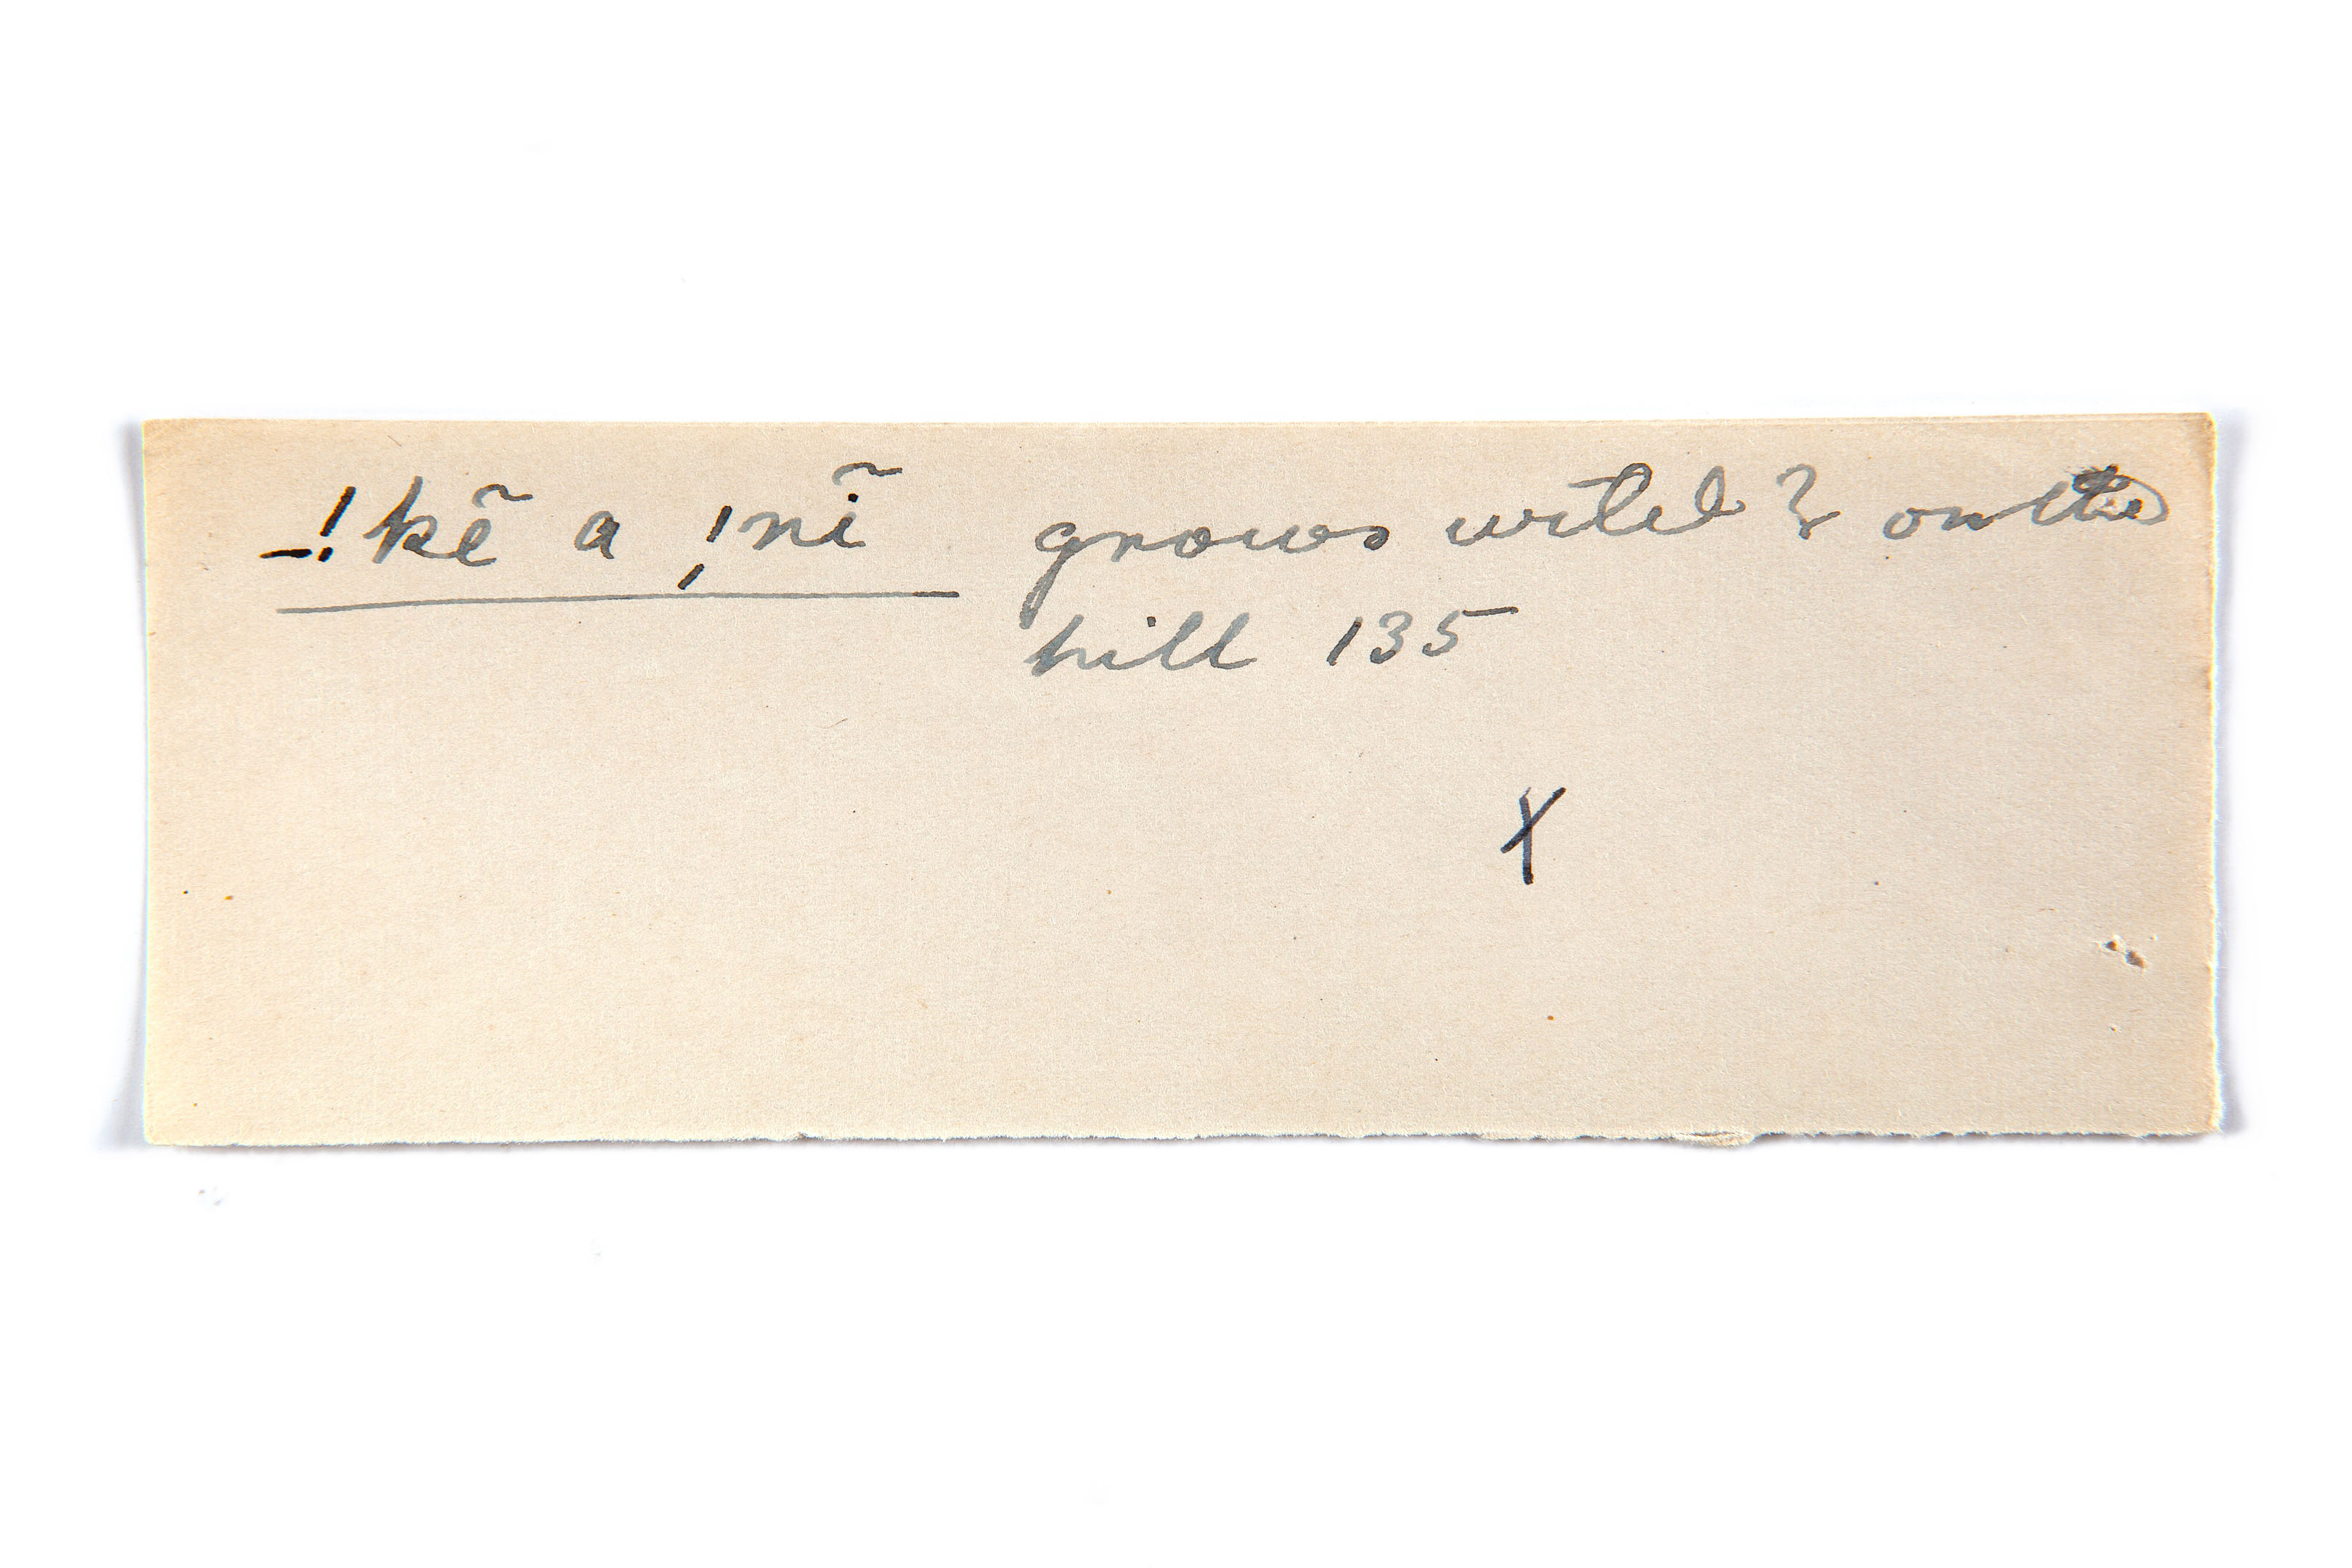 _!kẽ a !,nĩ grows wild & on the
hill 135
X